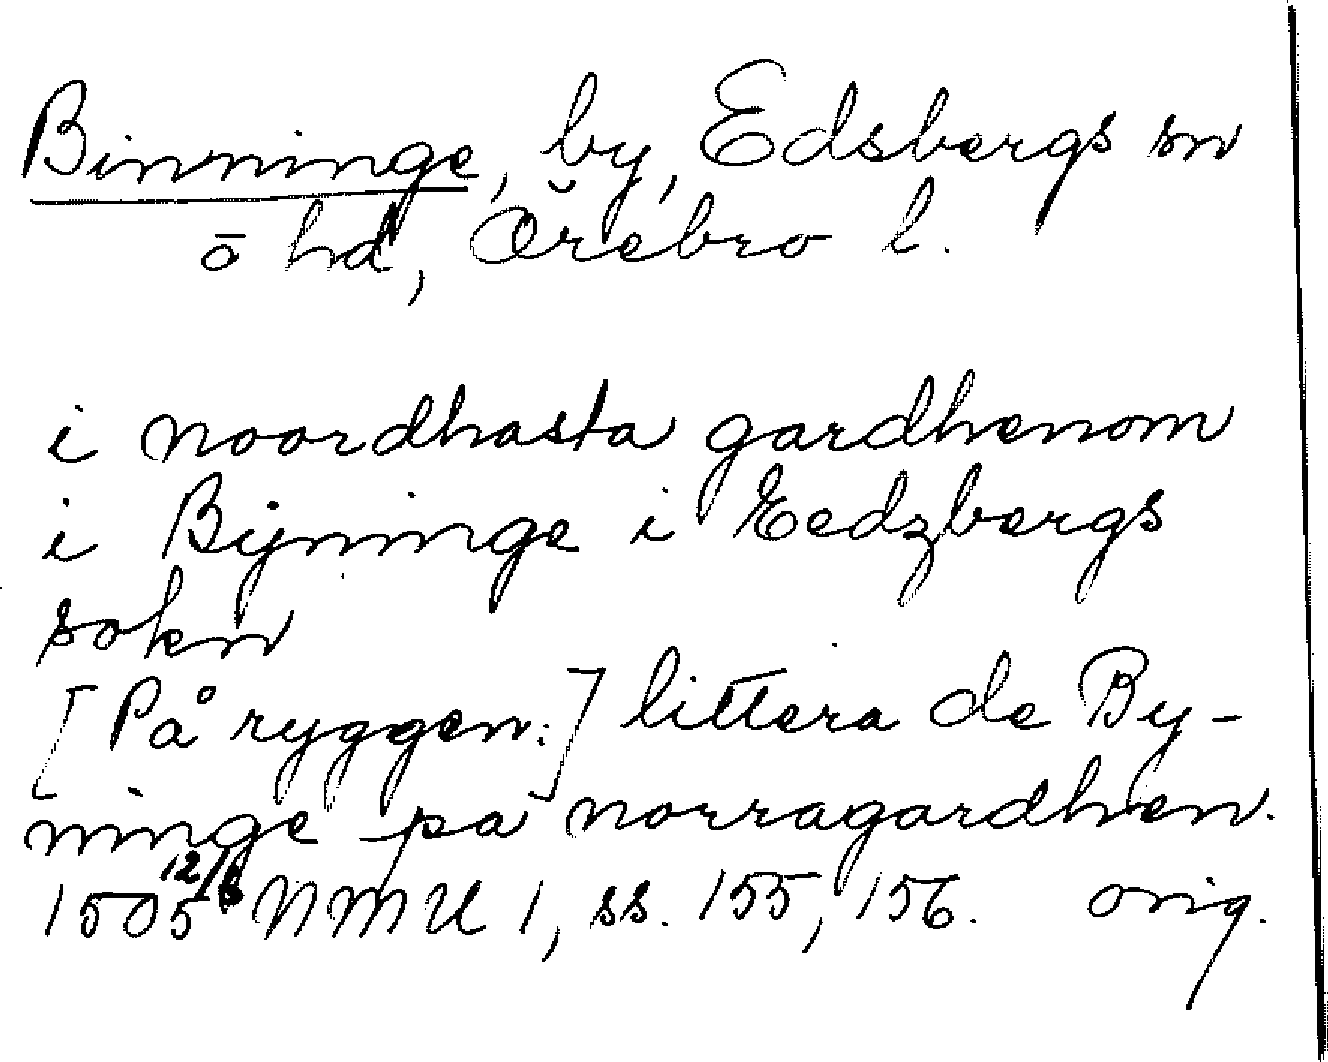 Binninge, by, Edsbergs sn
o hd, Örebro l.
i noordhasta gardhenom
i Bijninge i Eedzbergs
sokn
[På ryggen:] littera de By-
ninge pa norragardhen.
1505 12/6 NMU 1, ss. 155, 156. orig.